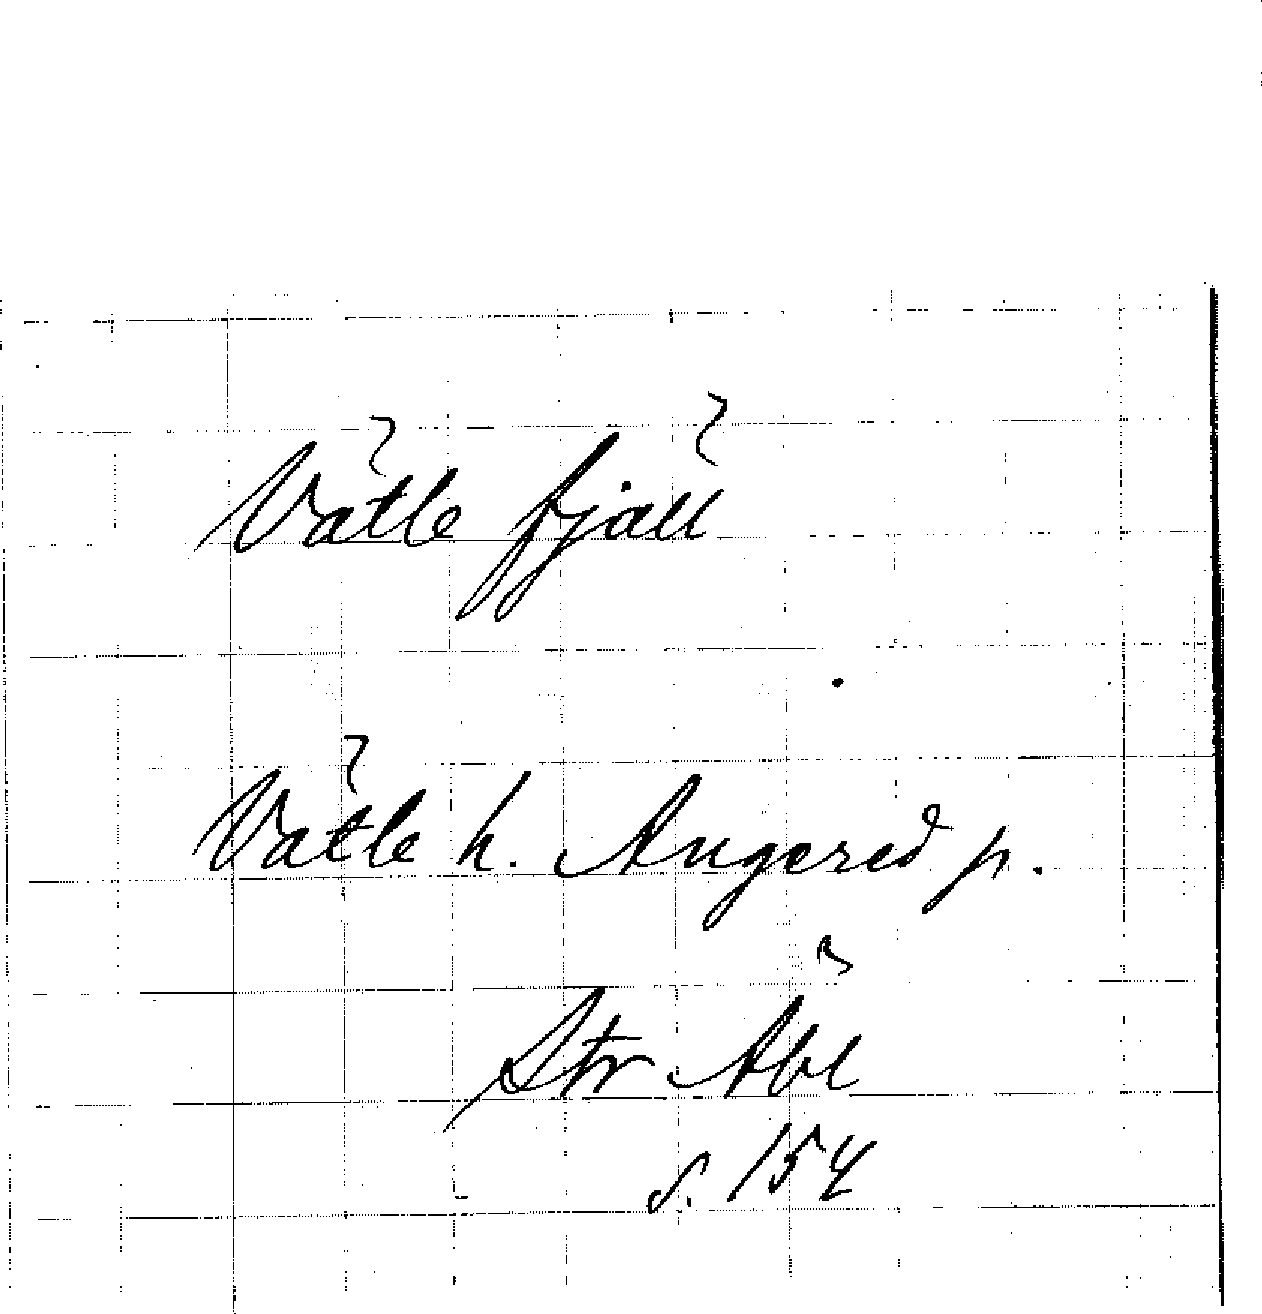 Vätle fjäll
Vätle h. Angered p.
Str Äbl
s. 154